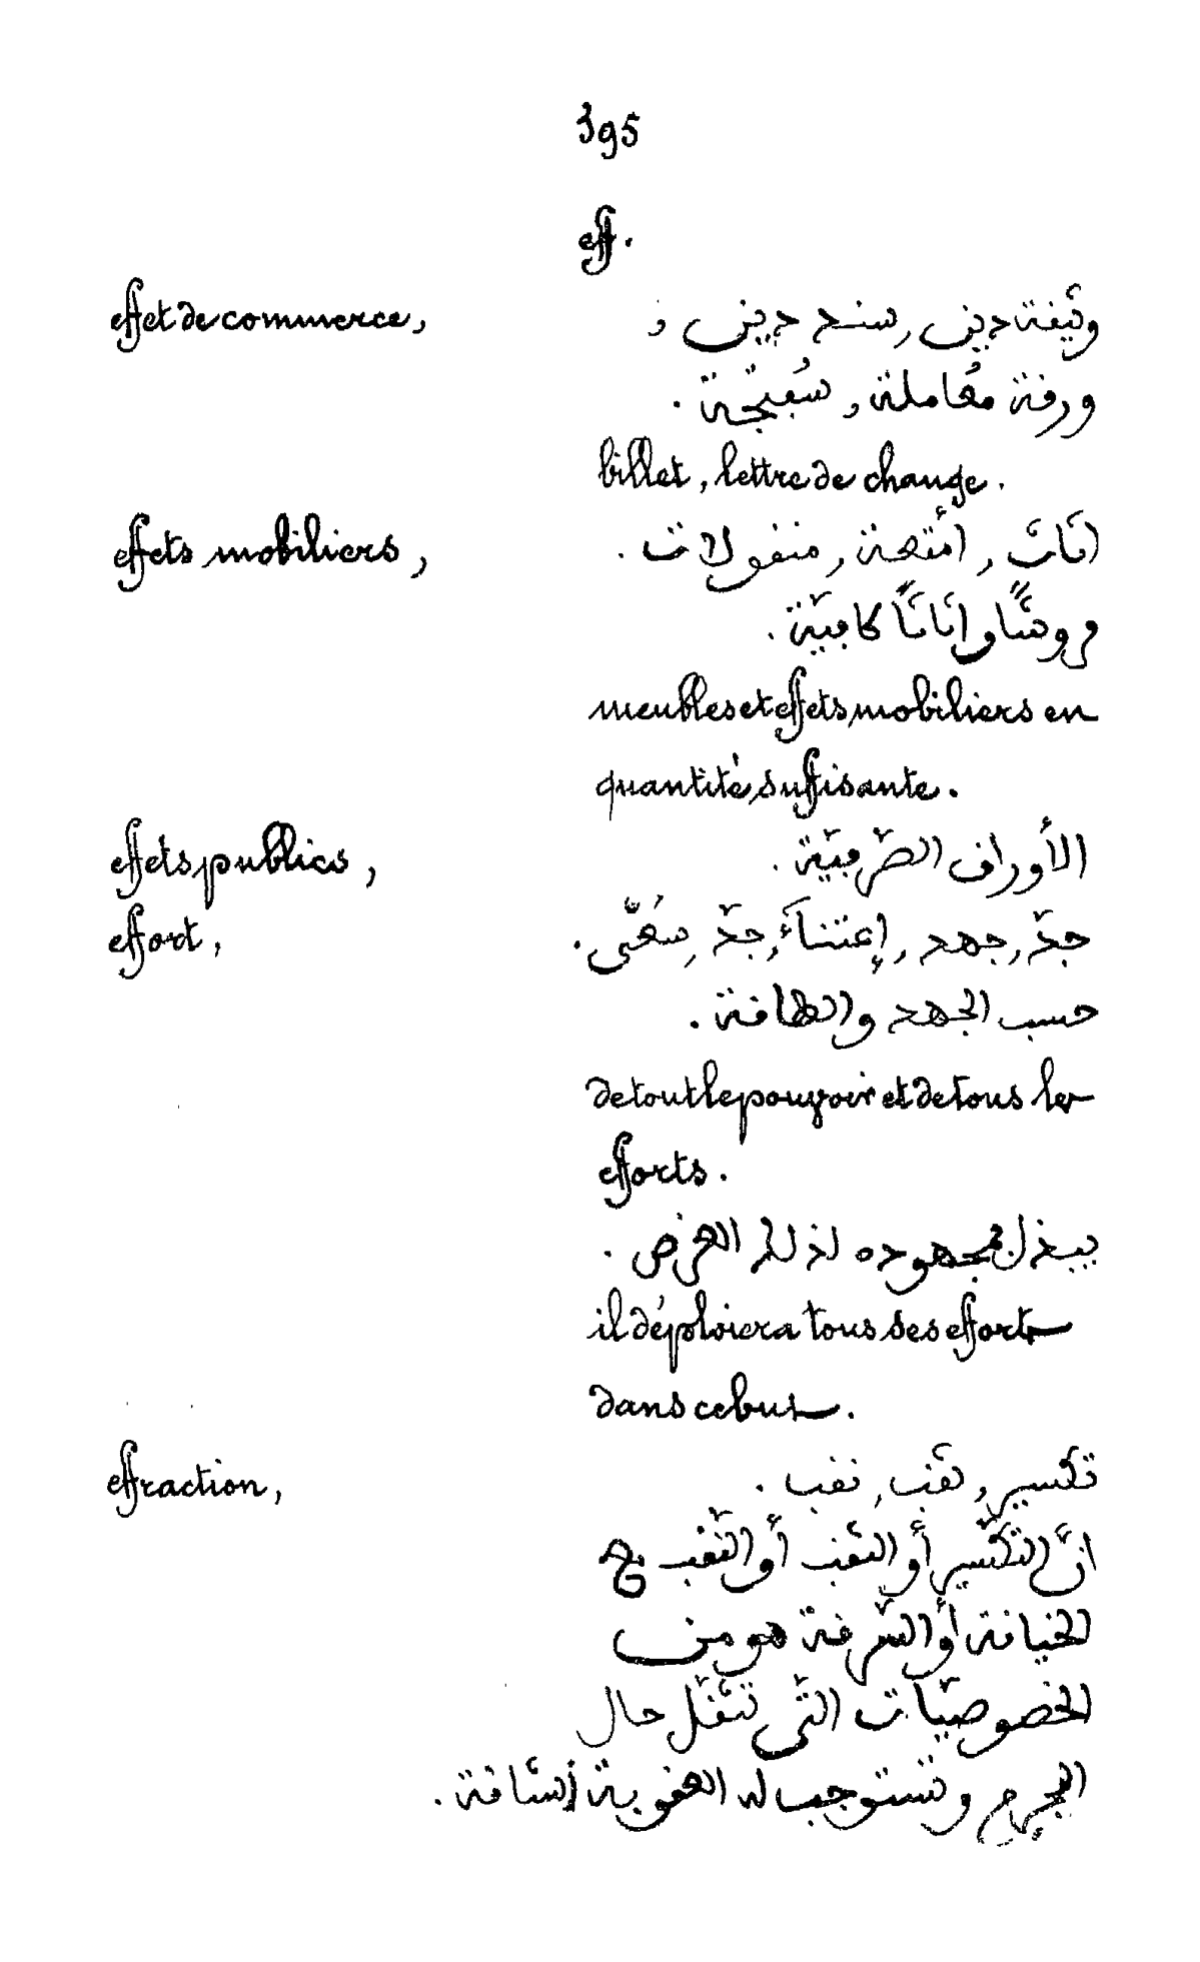 395
eff.
effet de commerce, وثيقة دين, سند دين,
ورقة مُعاملة, سُفتجة.
billet, lettre de change.
effets mobiliers, اثاث, أمتعة, منقولات.
فروشًا واثاثًا كافيّة.
meubles et effets mobiliers en
quantité suffisante.
effets publics, الأوراق الصّرفيّة.
effort, جدّ, جهد, إعتناء, جدّ, سعى.
حسب الجهد والطاقة.
de tout le pouvoir et de tous les
efforts.
يبذل مجهوده لذلك الغرض.
il déploiera tous ses efforts
dans ce but.
effraction, تكسير, ثقب, نقب.
انّ التكسير أو الثقب أو النّقب في
الخيانة أو السّرقة هو من
الخصوصيّات التّى تثقّل حال
المجرم وتستوجب له العقوبة الشّاقة.